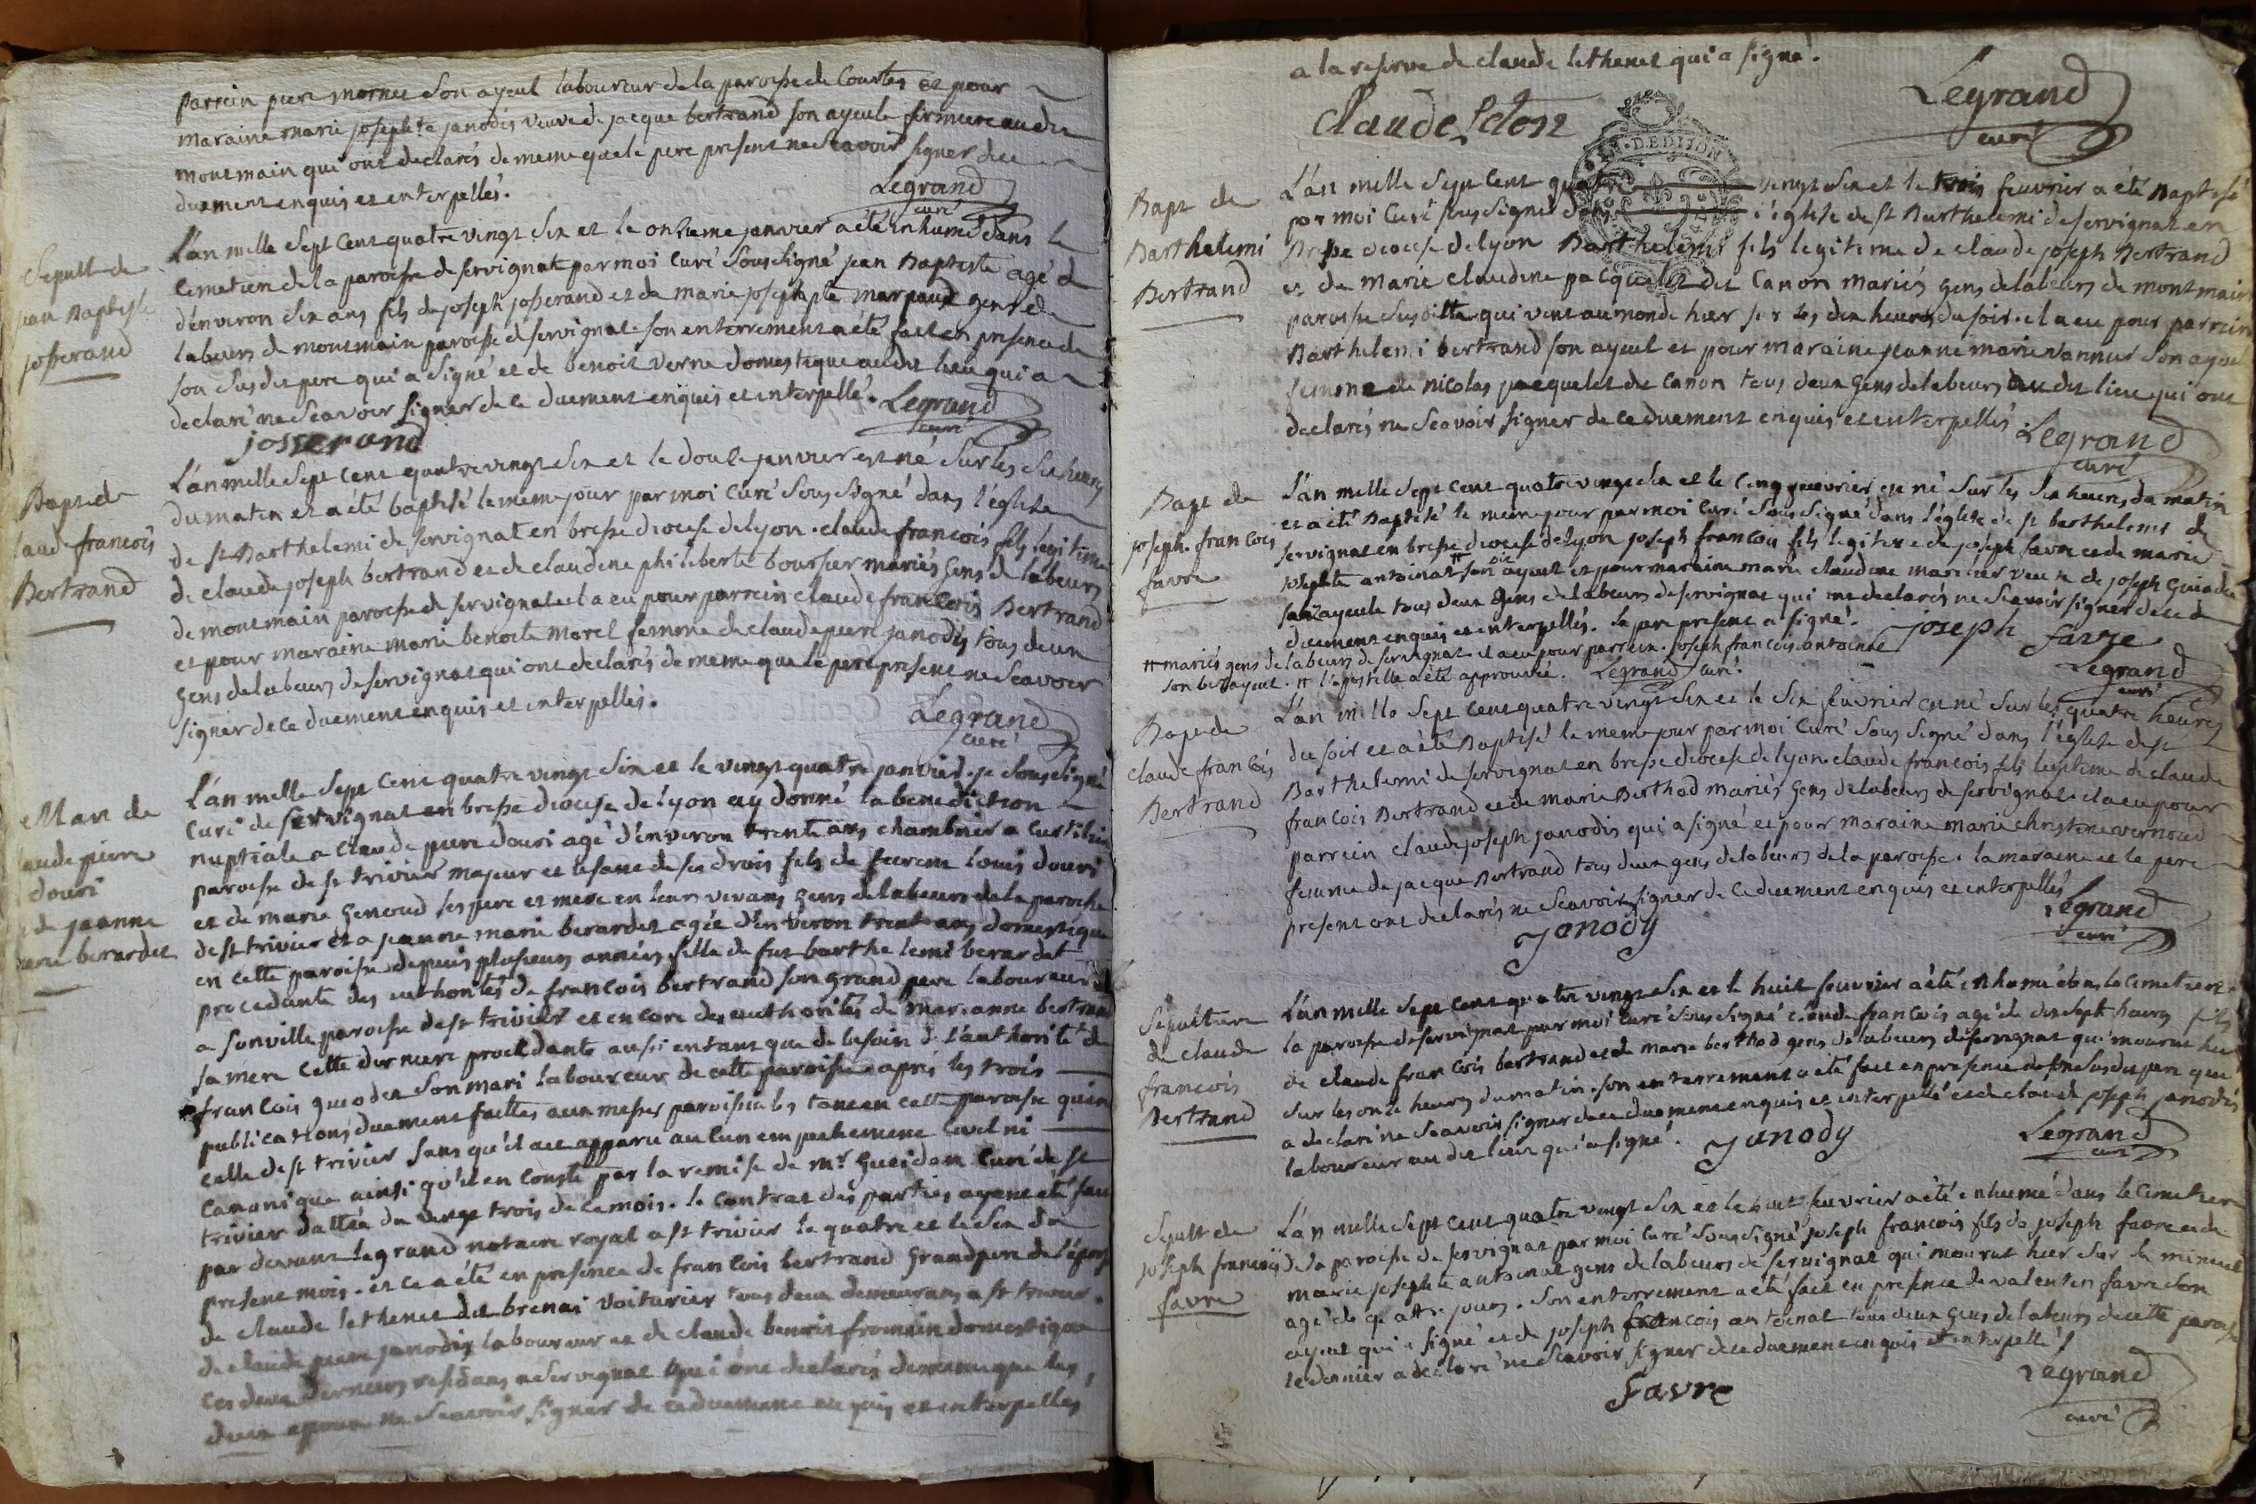 parrein piere mornet son ayeul laboureur de la paroisse de Courtes et pour
maraine marie josephte janodis veuve de jacque bertrand son ayeule fermiere audit
montmain qui ont declarés de meme que le pere present ne Scavoir signer de ce
duement enquis et interpellés.
Legrand
curé
Sepult de
jean Baptiste
josserand
L'an mille sept cent quatre vingt six et le onzieme janvier a été inhumé dans le
cimetiere de la paroisse de servignat par moi Curé Soussigné jean Baptiste agé d
d'environ six ans fils de joseph josserand et de marie josephte marpaud gens de
labeurs de montmain paroisse de servignat son enterrement a été fait en presence de
son susdit pere qui a signé et de benoit verne domestique audit lieu qui a
declaré ne Scavoir signer de ce duement enquis et interpellé.
Legrand
curé
josserand
Bapt de
laude francois
Bertrand
L'an mille sept cent quatre vingt six et le douze janvier est né sur les six heures
du matin et a été baptisé le meme jour par moi Curé Sous Signé dans l'église
de st Barthelemi de servignat en bresse diocese de lyon. claude francois fils legitime
de claude joseph bertrand et de claudine philiberte boursier mariés gens de labeurs
de montmain paroisse de servignat il a eu pour parrein claude francois Bertrand
et pour maraine marie benoite morel femme de claude piere janodis tous deux
gens de labeurs de servignat qui ont declarés de meme que le pere present ne Scavoir
signer de ce duement enquis et interpellés.
Legrand
curé
Mar de
aude pierre
douri
de jeanne
marie berardet
L'an mille sept cent quatre vingt six et le vingt quatre janvier. je Sous Signé
Curé de servignat en bresse diocese de lyon ay donné la benediction
nuptiale a claude piere douri agé d'environ trente ans chambrier a
paroisse de st trivier majeur et usant de ses droits fils de louis douri
et de marie gencoud ses pere et mere en leurs vivans gens de labeurs de la paroisse
de st trivier et a jeanne marie berardet agée d'environ trente ans domestique
en cette paroisse depuis plusieurs années fille de fut barthelemi berardet
procedante des authorités de francois bertrand son grand pere laboureur
a sonville paroisse de st trivier et encore des authorités de marianne bertrand
sa mere cette derniere procedante aussi entant que de besoin de l'authorité de
francois son mari laboureur de cette paroisse après les trois
publications duement faittes aux messes paroissiales tant en cette paroisse qu'en
celle de st trivier sans qu'il aie apparu aucun empechement civil ni
canonique ainsi qu'il en conste par la remise de mr gueidan Curé de st
trivier dattée du vingt trois de ce mois. le contrat des parties ayant été fait
par devant legrand notaire royal a st trivier le quatre et le six du
present mois. et ce a été en presence de francois bertrand grand pere de l'épouse
de claude lethenet dit brenai voiturier tous deux demeurans a st trivier.
de claude piere janodis laboureur et de claude benoit fromain domestique
ces deux derniers residans a servignat qui ont declarés de meme que les
deux epoux ne Scavoir signer de ce duement enquis et interpellés
a la reserve de claude lethenet qui a signé.
Legrand
curé
Claude
Bapt de
Barthelemi
Bertrand
L'an mille sept cent quatre vingt six et le trois feuvrier a été Baptisé
par moi Curé sous signé dans l'église de st Barthelemi de servignat en
Bresse diocese de lyon Barthelemi fils legitime de claude joseph Bertrand
et de marie claudine pacquelet dit Canon mariés gens de labeurs de montmain
paroisse susditte qui vint au monde hier sur les dix heures du soir. il a eu pour parrein
Barthelemi bertrand son ayeul et pour maraine jeanne marie vannier son ayeule
femme de nicolas pacquelet dit Canon tous deux gens de labeurs audit lieu qui ont
declarés ne Scavoir signer de ce duement enquis et interpellés
Legrand
curé
Bapt de
joseph. francois
favre
L'an mille sept cent quatre vingt six et le cinq feuvrier est né sur les six heures du matin
et a été Baptisé le meme jour par moi Curé Sous signé dans l'église de st barthelemi de
servignat en bresse diocese de lyon joseph francois fils legitime de joseph favre et de marie
josephte antoinat son ayeul et pour maraine marie claudine mercier veuve de joseph
ayeule tous deux gens de labeurs de servignat qui ont declarés ne Scavoir signer de ce
duement enquis et interpellés. le pere present a signé.
joseph favre
mariés gens de labeurs de servignat. il a eu pour parrein. joseph francois antoinat
son bisayeul. l'apostille a été approuvée. Legrand curé.
Legrand
curé
Bapt de
claude francois
Bertrand
L'an mille sept cent quatre vingt six et le six feuvrier est né sur les quatre heures
du soir et a été Baptisé le meme jour par moi Curé Sous Signé dans l'église de st
Barthelemi de servignat en bresse diocese de lyon. claude francois fils legitime de claude
francois Bertrand et de marie Berthod mariés gens de labeurs de servignat. il a eu pour
parrein claude joseph janodis qui a signé et pour maraine marie christine vernoud
femme de jacque Bertrand tous deux gens de labeurs de la paroisse. la maraine et le pere
present ont declarés ne Scavoir signer de ce duement enquis et interpellés
Legrand
curé
Janody
Sepulture
de claude
francois
Bertrand
L'an mille sept cent quatre vingt six et le huit feuvrier a été inhumé dans le cimetiere
la paroisse de servignat par moi Curé Sous signé claude francois agé de dix sept heures fils
de claude francois bertrand et de marie berthod gens de labeurs de servignat qui mourut hier
sur les onze heures du matin. son enterrement a été fait en presence de son susdit pere qui
a declaré ne Scavoir signer de ce duement enquis et interpellé et de claude joseph janodis
laboureur audit lieu qui a signé.
Janody
Legrand
curé
Sepult de
joseph francois
favre
L'an mille sept cent quatre vingt six et le huit feuvrier a été inhumé dans le cimetiere
de la paroisse de servignat par moi Curé Sous signé joseph francois fils de joseph favre et de
marie josephte antoinat gens de labeurs de servignat qui mourut hier sur la minuit
agé de quatre jours. son enterrement a été fait en presence de valentin favre son
ayeul qui a signé et de joseph francois antoinat tous deux gens de labeurs de cette paroisse
le dernier a declaré ne Scavoir signer de ce duement enquis et interpellé
Legrand
curé
favre